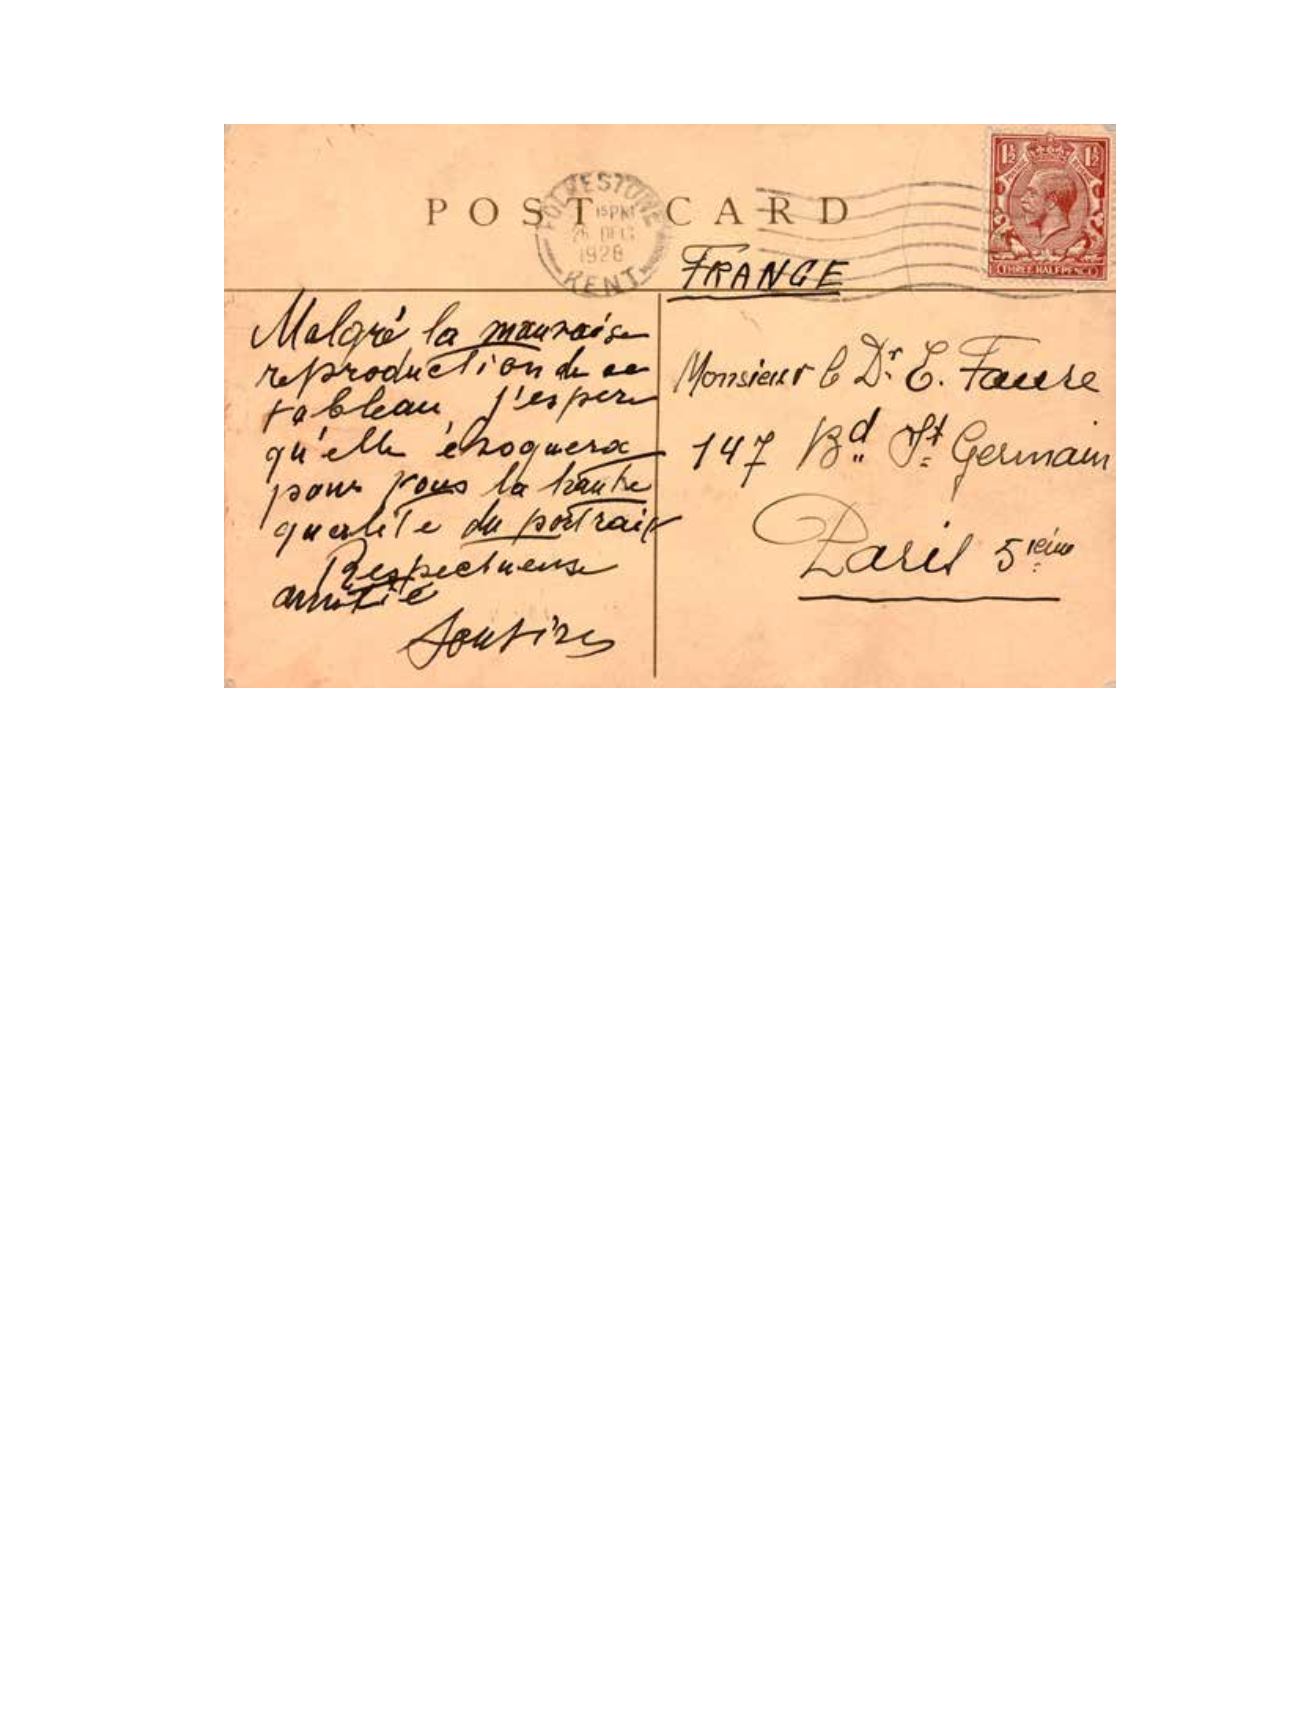 POST CARD
FOLKESTONE
15 PM
26 DEC
1928
KENT
1½ 1½
THREE HALFPENCE
FRANCE
Malgré la mauvaise
reproduction de ce
tableau j'espere
qu'elle évoquera
pour vous la haute
qualité du portrait
Respectueuse
amitié
Soutine
Monsieur le Dr E. Faure
147 Bd St Germain
Paris 5ieme